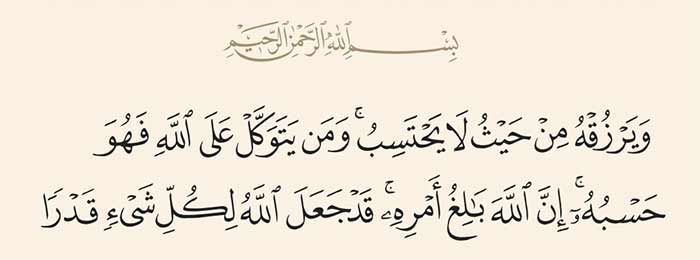 بِسْمِ اللَّهِ الرَّحْمَٰنِ الرَّحِيمِ
وَيَرْزُقْهُ مِنْ حَيْثُ لَا يَحْتَسِبُ ۚ وَمَن يَتَوَكَّلْ عَلَى ٱللَّهِ فَهُوَ
حَسْبُهُۥٓ ۚ إِنَّ ٱللَّهَ بَٰلِغُ أَمْرِهِۦ ۚ قَدْ جَعَلَ ٱللَّهُ لِكُلِّ شَىْءٍ قَدْرًا